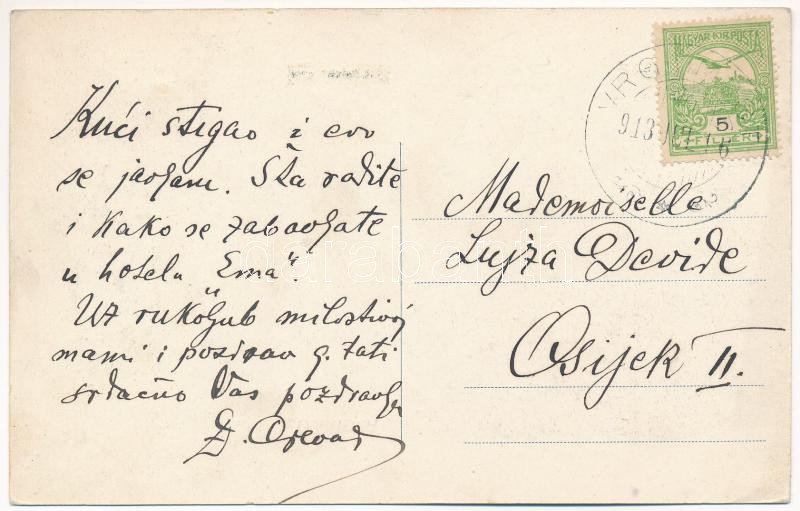 Kući stigao i evo
se javljam. Šta radite
i kako se zabavljate
u hotelu "Ema".
Uz rukoljub milostivoj
mami i pozdrav g. tati
srdačno Vas pozdravlja
Mademoiselle
Lujza Devide
Osijek II.
MAGYAR KIR. POSTA
5
FILLÉR
913